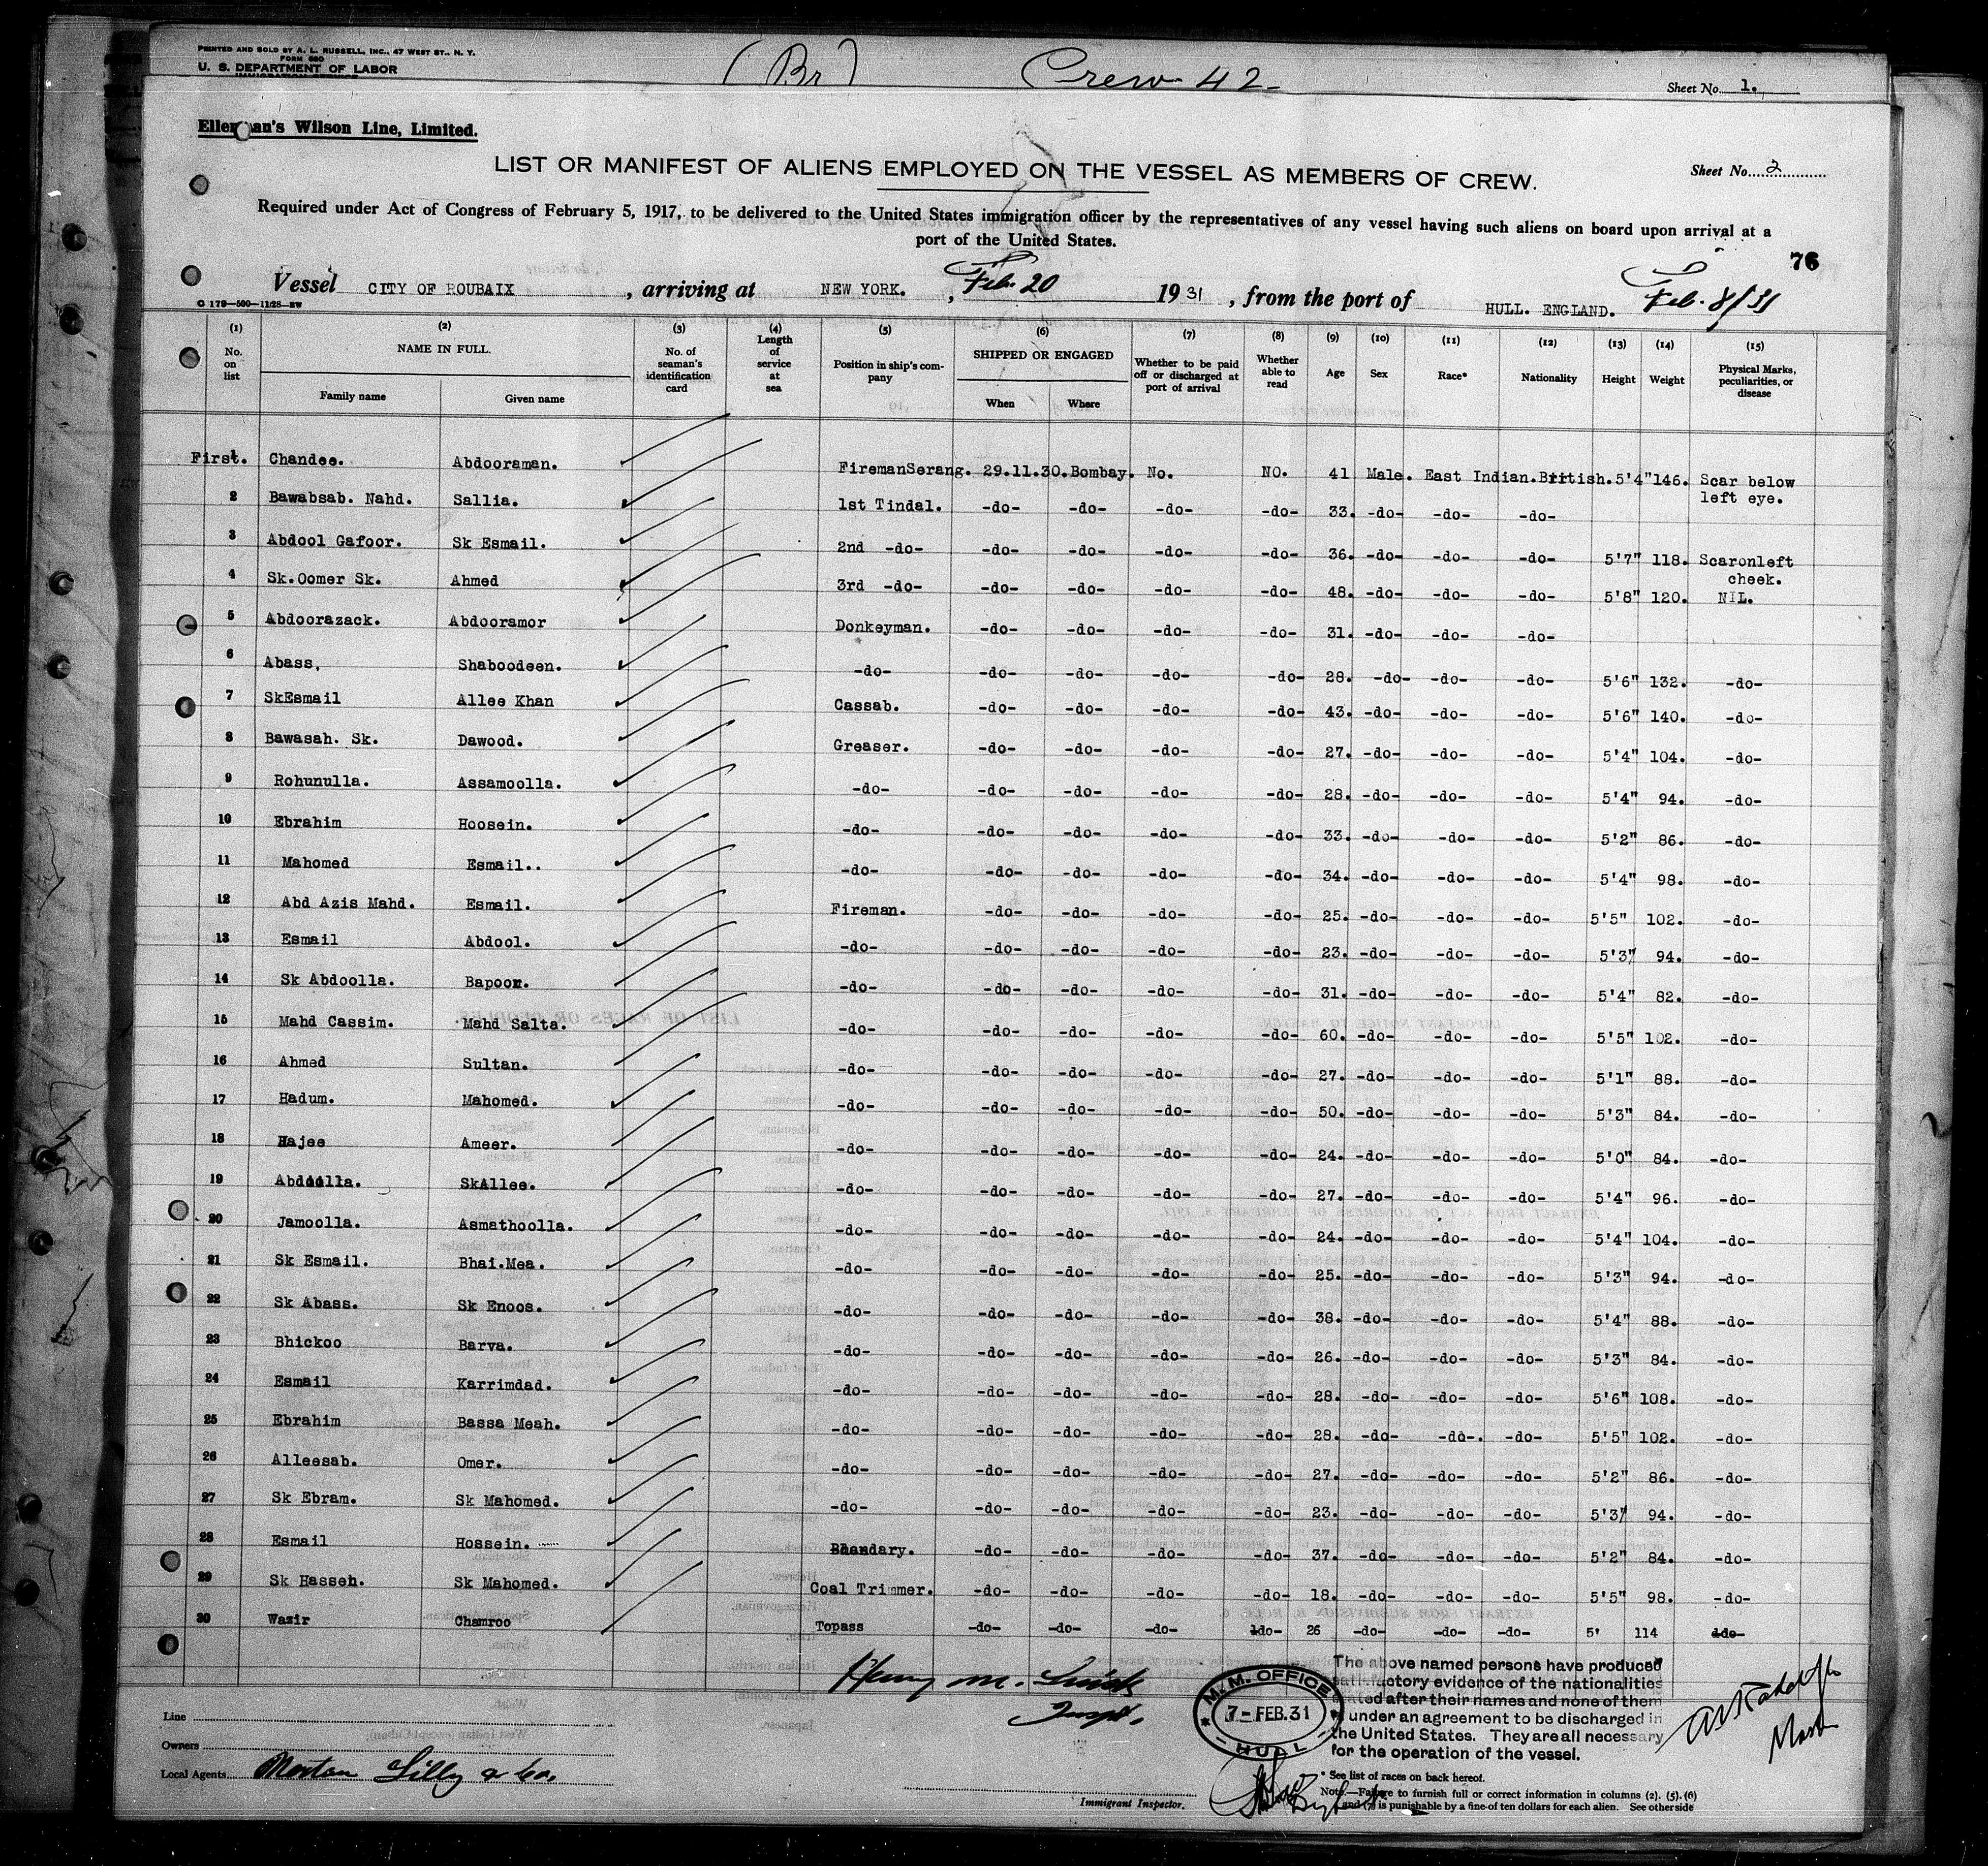 PRINTED AND SOLD BY A. L. RUSSELL, INC., 47 WEST ST., N. Y.
FORM 680
U. S. DEPARTMENT OF LABOR
(Br) Crew 42-
Sheet No. 1.
Ellerman's Wilson Line, Limited.
LIST OR MANIFEST OF ALIENS EMPLOYED ON THE VESSEL AS MEMBERS OF CREW.
Sheet No. 2
Required under Act of Congress of February 5, 1917, to be delivered to the United States immigration officer by the representatives of any vessel having such aliens on board upon arrival at a
port of the United States.
76
Vessel CITY OF ROUBAIX, arriving at NEW YORK., Feb. 20 1931, from the port of HULL. ENGLAND. Feb. 8/31
(1) No. on list (2) NAME IN FULL. Family name Given name (3) No. of seaman's identification card (4) Length of service at sea (5) Position in ship's company (6) SHIPPED OR ENGAGED When Where (7) Whether to be paid off or discharged at port of arrival (8) Whether able to read (9) Age (10) Sex (11) Race* (12) Nationality (13) Height (14) Weight (15) Physical Marks, peculiarities, or disease
First. Chandee. Abdooraman. FiremanSerang. 29.11.30. Bombay. No. NO. 41 Male. East Indian. British. 5'4" 146. Scar below left eye.
2 Bawabsab. Nahd. Sallia. 1st Tindal. -do- -do- -do- -do- 33. -do- -do- -do-
3 Abdool Gafoor. Sk Esmail. 2nd -do- -do- -do- -do- -do- 36. -do- -do- -do- 5'7" 118. Scaronleft cheek.
4 Sk.Oomer Sk. Ahmed 3rd -do- -do- -do- -do- -do- 48. -do- -do- -do- 5'8" 120. NIL.
5 Abdoorazack. Abdooramor Donkeyman. -do- -do- -do- -do- 31. -do- -do- -do-
6 Abass, Shaboodeen. -do- -do- -do- -do- -do- 28. -do- -do- -do- 5'6" 132. -do-
7 SkEsmail Allee Khan Cassab. -do- -do- -do- -do- 43. -do- -do- -do- 5'6" 140. -do-
8 Bawasah. Sk. Dawood. Greaser. -do- -do- -do- -do- 27. -do- -do- -do- 5'4" 104. -do-
9 Rohunulla. Assamoolla. -do- -do- -do- -do- -do- 28. -do- -do- -do- 5'4" 94. -do-
10 Ebrahim Hoosein. -do- -do- -do- -do- -do- 33. -do- -do- -do- 5'2" 86. -do-
11 Mahomed Esmail.. -do- -do- -do- -do- -do- 34. -do- -do- -do- 5'4" 98. -do-
12 Abd Azis Mahd. Esmail. Fireman. -do- -do- -do- -do- 25. -do- -do- -do- 5'5" 102. -do-
13 Esmail Abdool. -do- -do- -do- -do- -do- 23. -do- -do- -do- 5'3" 94. -do-
14 Sk Abdoolla. Bapoor. -do- -do- -do- -do- -do- 31. -do- -do- -do- 5'4" 82. -do-
15 Mahd Cassim. Mahd Salta. -do- -do- -do- -do- -do- 60. -do- -do- -do- 5'5" 102. -do-
16 Ahmed Sultan. -do- -do- -do- -do- -do- 27. -do- -do- -do- 5'1" 88. -do-
17 Hadum. Mahomed. -do- -do- -do- -do- -do- 50. -do- -do- -do- 5'3" 84. -do-
18 Hajee Ameer. -do- -do- -do- -do- -do- 24. -do- -do- -do- 5'0" 84. -do-
19 Abdoolla. SkAllee. -do- -do- -do- -do- -do- 27. -do- -do- -do- 5'4" 96. -do-
20 Jamoolla. Asmathoolla. -do- -do- -do- -do- -do- 24. -do- -do- -do- 5'4" 104. -do-
21 Sk Esmail. Bhai.Mea. -do- -do- -do- -do- -do- 25. -do- -do- -do- 5'3" 94. -do-
22 Sk Abass. Sk Enoos. -do- -do- -do- -do- -do- 38. -do- -do- -do- 5'4" 88. -do-
23 Bhickoo Barva. -do- -do- -do- -do- -do- 26. -do- -do- -do- 5'3" 84. -do-
24 Esmail Karrimdad. -do- -do- -do- -do- -do- 28. -do- -do- -do- 5'6" 108. -do-
25 Ebrahim Bassa Meah. -do- -do- -do- -do- -do- 28. -do- -do-. -do- 5'5" 102. -do-
26 Alleesab. Omer. -do- -do- -do- -do- -do- 27. -do- -do- -do- 5'2" 86. -do-
27 Sk Ebram. Sk Mahomed. -do- -do- -do- -do- -do- 23. -do- -do- -do- 5'3" 94. -do-
28 Esmail Hossein. Bhandary. -do- -do- -do- -do- 37. -do- -do- -do- 5'2" 84. -do-
29 Sk Hasseh. Sk Mahomed. Coal Trimmer. -do- -do- -do- -do- 18. -do- -do- -do- 5'5" 98. -do-
30 Wazir Chamroo Topass -do- -do- -do- -do- 26 -do- -do- -do- 5' 114 -do-
Henry M.
Inspt.
M. M. OFFICE
7-FEB.31
HULL
The above named persons have produced
satisfactory evidence of the nationalities
stated after their names and none of them
under an agreement to be discharged in
the United States. They are all necessary
for the operation of the vessel.
Master
Line
Owners
Local Agents Morton Lilly & Co,
Immigrant Inspector.
* See list of races on back hereof.
Note.—Failure to furnish full or correct information in columns (2). (5). (6)
and (7) is punishable by a fine of ten dollars for each alien. See other side
C 179—500—11/28—RW